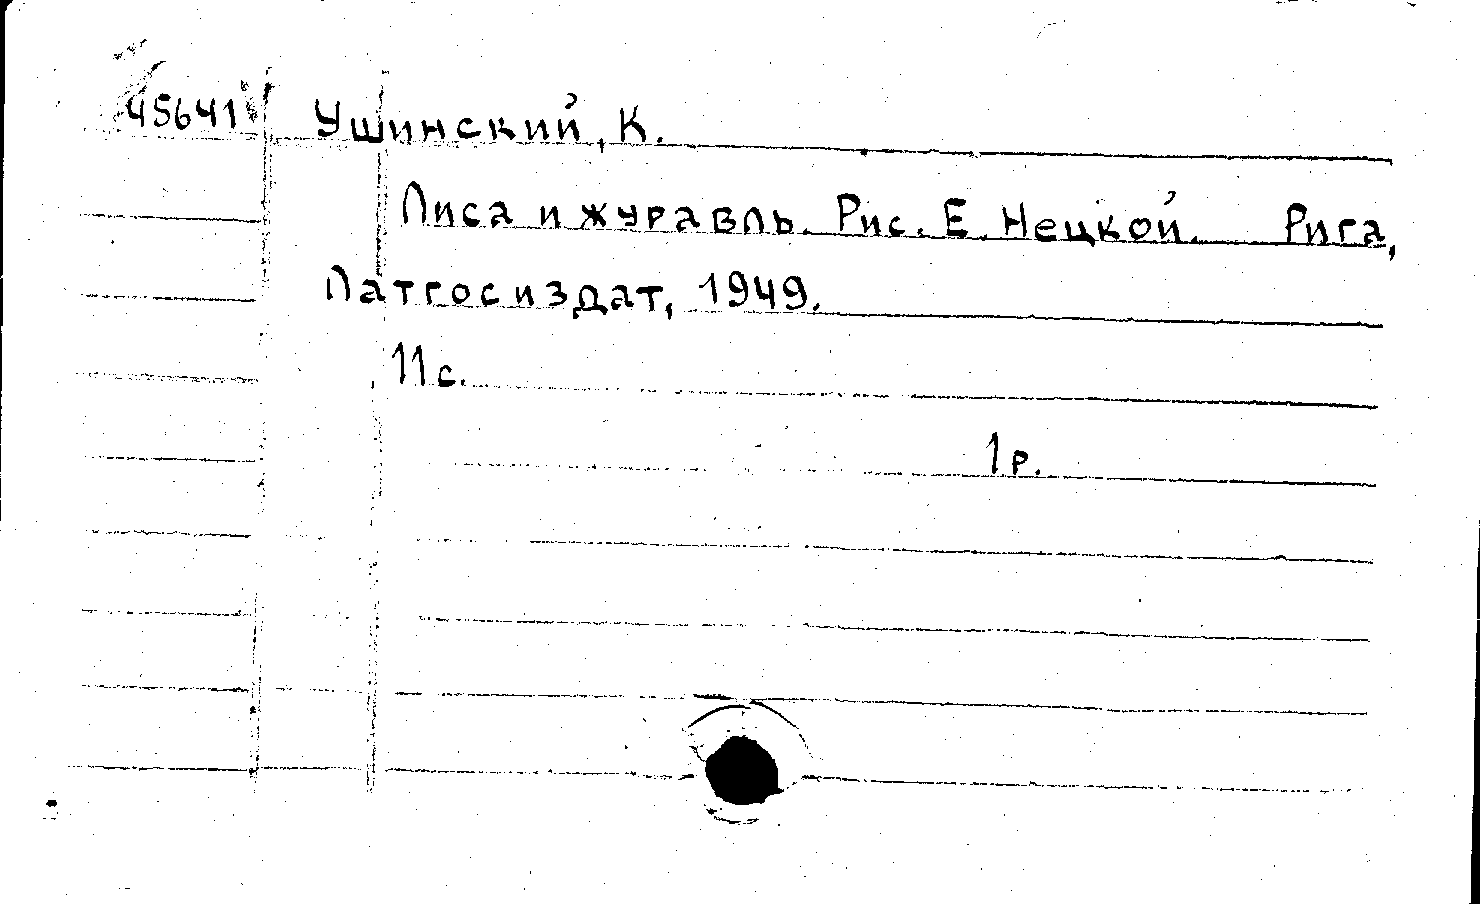 45641 Ушинский, К.
Лиса и журавль. Рис. Е. Нецкой. Рига,
Латгосиздат, 1949.
11 с.
1 р.